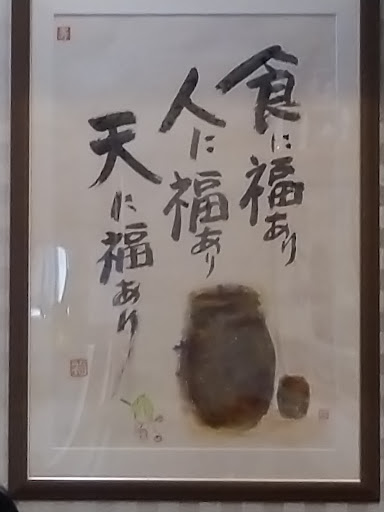 食に福あり
人に福あり
天に福あり